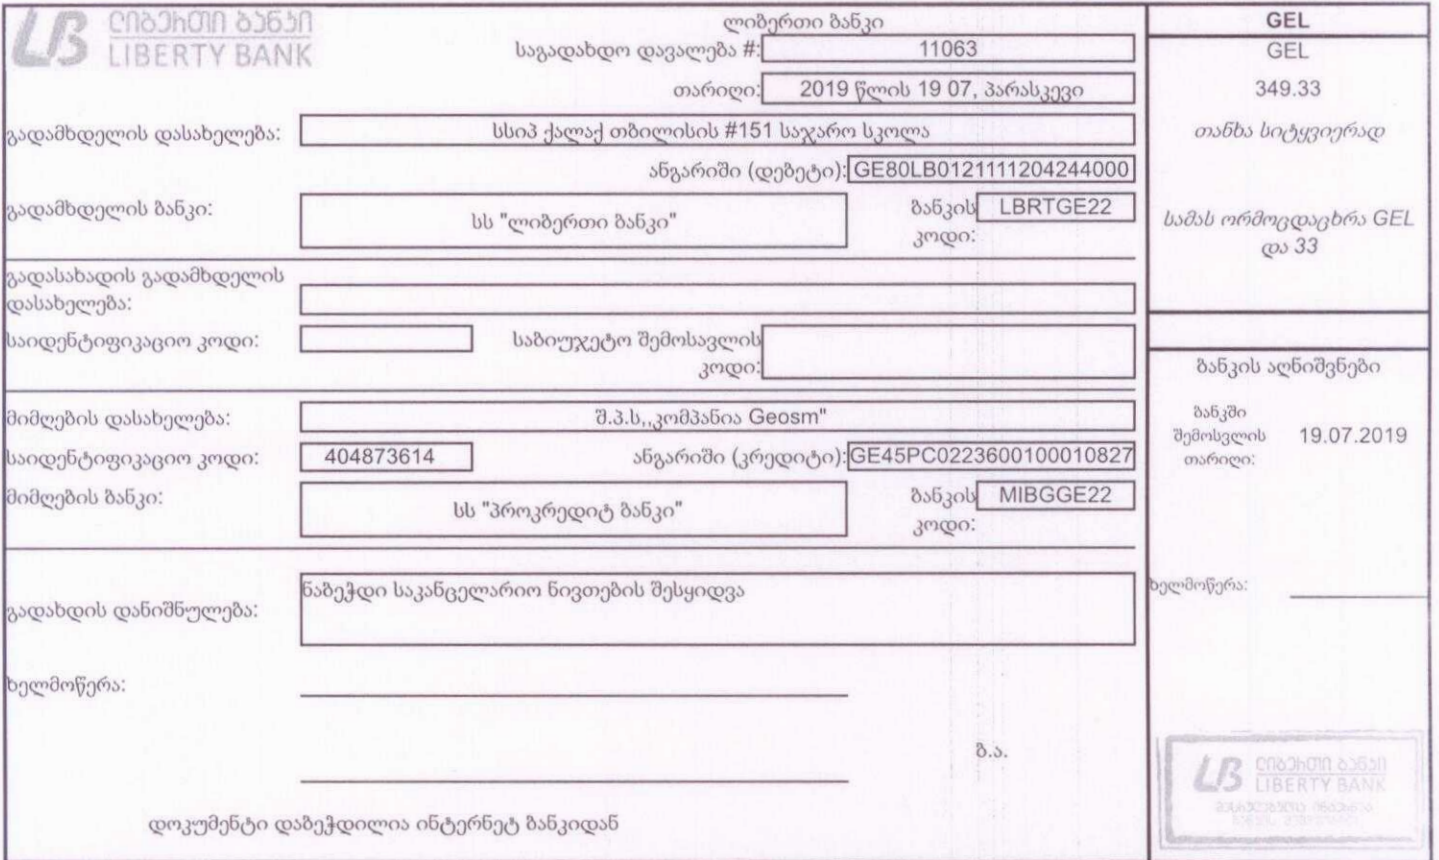 ლიბერთი ბანკი
LIBERTY BANK
ლიბერთი ბანკი
საგადახდო დავალება #: 11063
თარიღი: 2019 წლის 19 07, პარასკევი
გადამხდელის დასახელება: სსიპ ქალაქ თბილისის #151 საჯარო სკოლა
ანგარიში (დებეტი): GE80LB0121111204244000
გადამხდელის ბანკი: სს "ლიბერთი ბანკი" ბანკის კოდი: LBRTGE22
გადასახადის გადამხდელის
დასახელება:
საიდენტიფიკაციო კოდი: საბიუჯეტო შემოსავლის
კოდი:
მიმღების დასახელება: შ.პ.ს,,კომპანია Geosm"
საიდენტიფიკაციო კოდი: 404873614 ანგარიში (კრედიტი): GE45PC0223600100010827
მიმღების ბანკი: სს "პროკრედიტ ბანკი" ბანკის კოდი: MIBGGE22
გადახდის დანიშნულება: ნაბეჭდი საკანცელარიო ნივთების შესყიდვა
ხელმოწერა:
ბ.ა.
დოკუმენტი დაბეჭდილია ინტერნეტ ბანკიდან
GEL
GEL
349.33
თანხა სიტყვიერად
სამას ორმოცდაცხრა GEL
და 33
ბანკის აღნიშვნები
ბანკში
შემოსვლის 19.07.2019
თარიღი:
ხელმოწერა:
ლიბერთი ბანკი
LIBERTY BANK